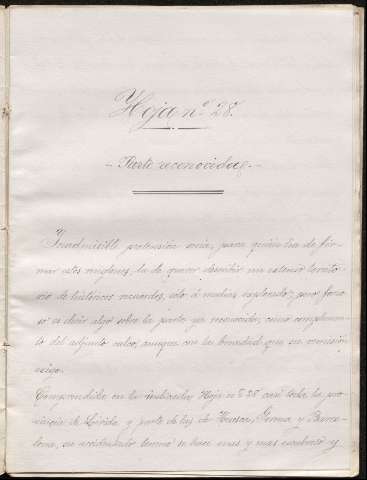 Hoja nº 28.
- Parte reconocida. -
Inadmisible pretensión sería, para quién ha de fir-
mar estos renglones, la de querer describir un extenso territo-
rio de históricos recuerdos, sólo á medias explorado; pero forzo-
so es decir algo sobre la parte ya reconocida, como complemen-
to del adjunto calco, aunque con la brevedad que su comisión
exige.
Comprendida en la indicada Hoja nº 28 casi toda la pro-
vincia de Lérida y parte de las de Huesca, Gerona y Barce-
lona, su accidentado terreno se hace mas y mas escabroso y